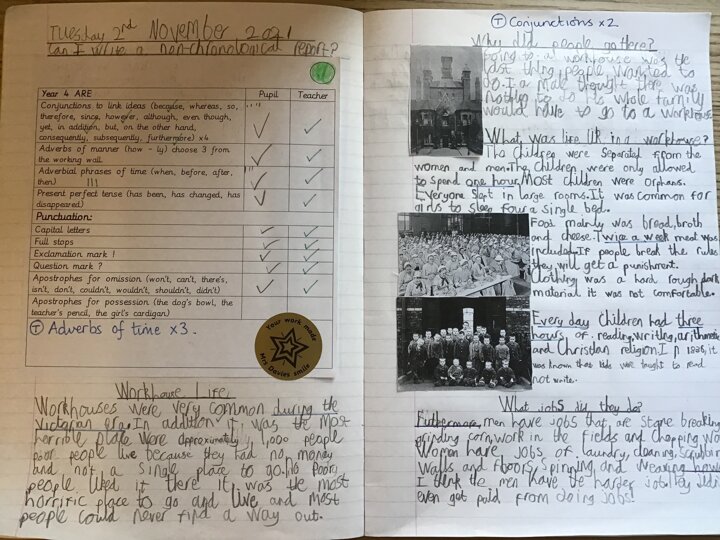 Tuesday 2nd November 2021
Can I write a non-chronological report?
Year 4 ARE Pupil Teacher
Conjunctions to link ideas (because, whereas, so,
therefore, since, however, although, even though,
yet, in addition, but, on the other hand,
consequently, subsequently, furthermore) x4
Adverbs of manner (how - ly) choose 3 from
the working wall.
Adverbial phrases of time (when, before, after,
then)
Present perfect tense (has been, has changed, has
disappeared)
Punctuation:
Capital letters
Full stops
Exclamation mark !
Question mark ?
Apostrophes for omission (won't, can't, there's,
isn't, don't, couldn't, wouldn't, shouldn't, didn't)
Apostrophes for possession (the dog's bowl, the
teacher's pencil, the girl's cardigan)
T Adverbs of time x3.
Your work made
Mrs Davies smile
Workhouse Life
Workhouses were very common during the
Victorian era. In addition it was the most
horrible place were approximately 1,000 people
poor people live because they had no money
and not a single place to go. No poor
people liked it there it was the most
horrific place to go and live and most
people could never find a way out.
T Conjunctions x2
Why did people go there?
Going to a workhouse was the
last thing people wanted to
do. I a male thought there was
nothing to do his whole family
would have to go to a workhouse
What was life lik in a workhouse?
The Children were separated from the
women and men. The Children were only allowed
to spend one hour. Most Children were orphans.
Everyone slept in large rooms. It was common for
girls to sleep four a single bed.
Food mainly was bread, broth
and cheese. Twice a week meat was
included. If people break the rules
they will get a punishment.
Clothing was a hard rough dark
material it was not comfortable.
Every day Children had three
hours of reading, writing, arithmetic
and Christian religion. I 1836, it
was known that kids wer taught to read
not write.
What jobs did they do?
Futhermore, men have jobs that are stone breaking
grinding corn, work in the fields and chopping wo
Women have jobs of laundry, cleaning, scrubbin
walls and floors, spinning and weaving
I think the men have the harder job. They didn
even get paid from doing jobs!